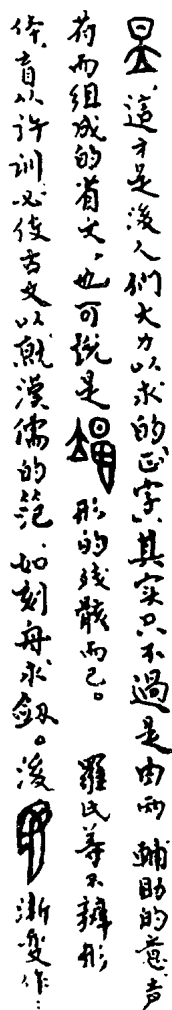 這才是後人們大力以求的正字、其实只不過是由两輔助的意声
符而組成的省文、也可說是形的残骸而已。 羅氏等不辨形
体、盲以許訓必使古文以就漢儒的范、如刻舟求劍。後渐变作：